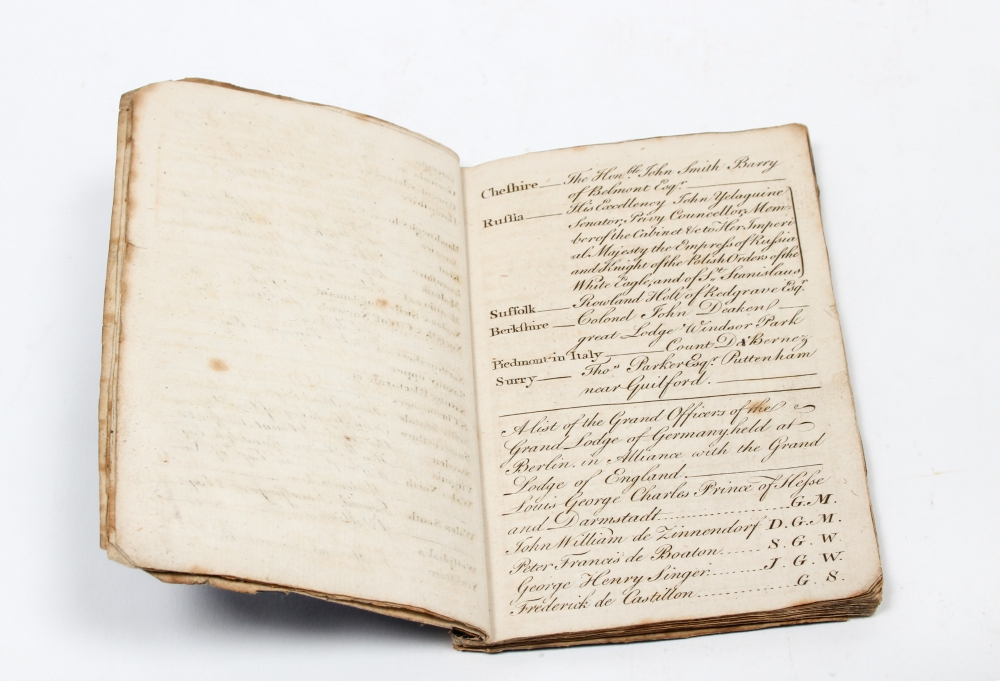 Cheſhire — The Hon.ble John Smith Barry
of Belmont Esq.r
Ruſsia — His Excellency John Yelaguine
Senator, Privy Councellor, Mem-
ber of the Cabinet &c to Her Imperi-
al Majesty the Empress of Russia
and Knight of the Polish Orders of the
White Eagle, and of S.t Stanislaus
Suffolk — Rowland Holt of Redgrave Esq.r
Berkſhire — Colonel John Deaken
great Lodge Windsor Park
Piedmont in Italy — Count Da Bernez
Surry — Tho.s Parker Esq.r Puttenham
near Guilford.
A list of the Grand Officers of the
Grand Lodge of Germany, held at
Berlin. in Alliance with the Grand
Lodge of England.
Louis George Charles Prince of Heſse
and Darmstadt ......... G. M.
John William de Zinnendorf D. G. M.
Peter Francis de Boaton ...... S. G. W.
George Henry Singer ......... J. G. W.
Frederick de Castillon ......... G. S.